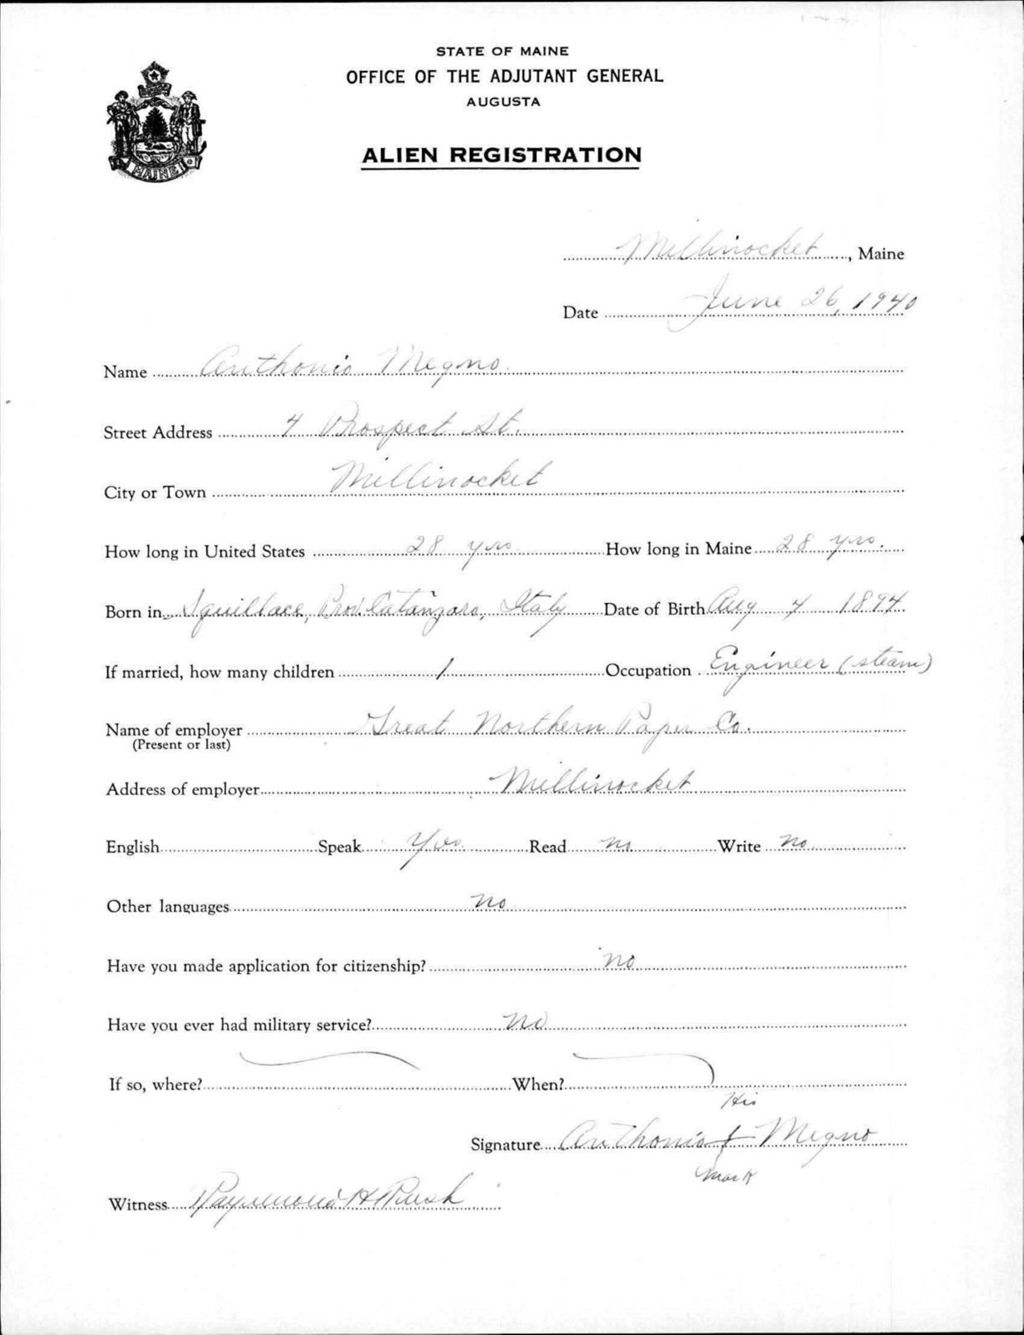 STATE OF MAINE
OFFICE OF THE ADJUTANT GENERAL
AUGUSTA
ALIEN REGISTRATION
MAINE
Millinocket, Maine
Date June 26, 1940
Name Anthonio Megno
Street Address 4 Prospect St.
City or Town Millinocket
How long in United States 28 yrs How long in Maine 28 yrs.
Born in Squillace, Prov. Catanzaro, Italy Date of Birth Aug 4 1894
If married, how many children 1 Occupation Engineer (steam)
Name of employer Great Northern Paper Co.
(Present or last)
Address of employer Millinocket
English Speak Yes Read no Write no
Other languages no
Have you made application for citizenship? no
Have you ever had military service? no
If so, where? When?
His
Signature Anthonio + Megno
mark
Witness Raymond H Rush